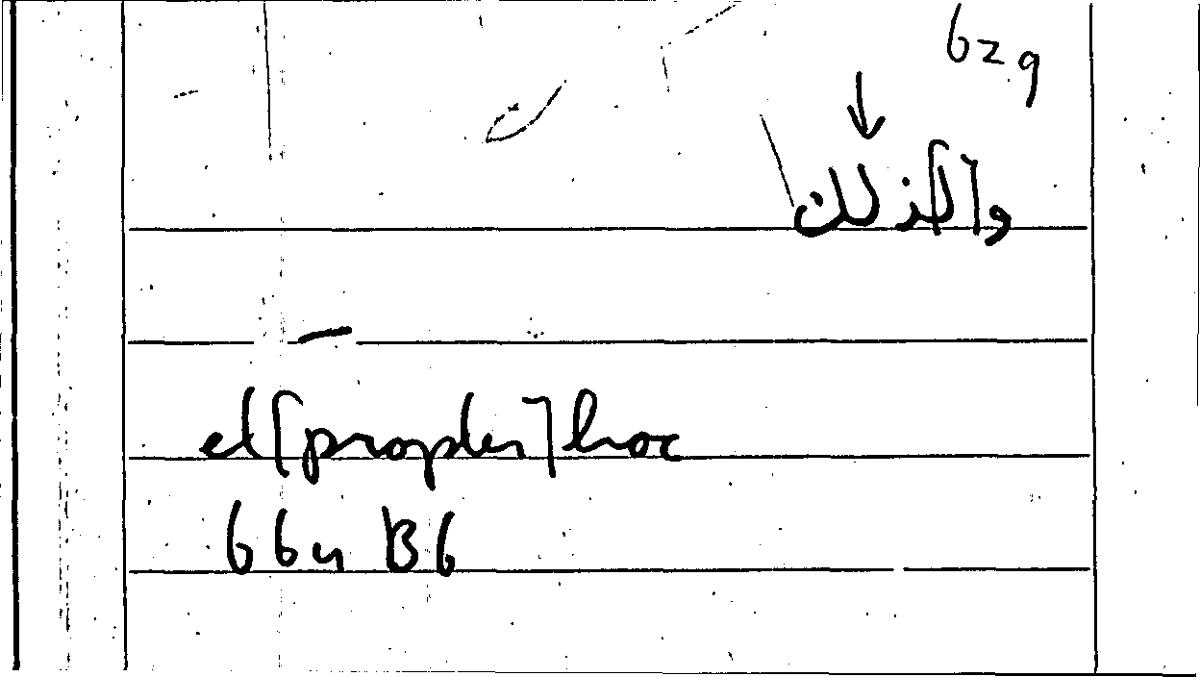 629
↓
و[ل]ذلك
et [propter] hoc
664 B6